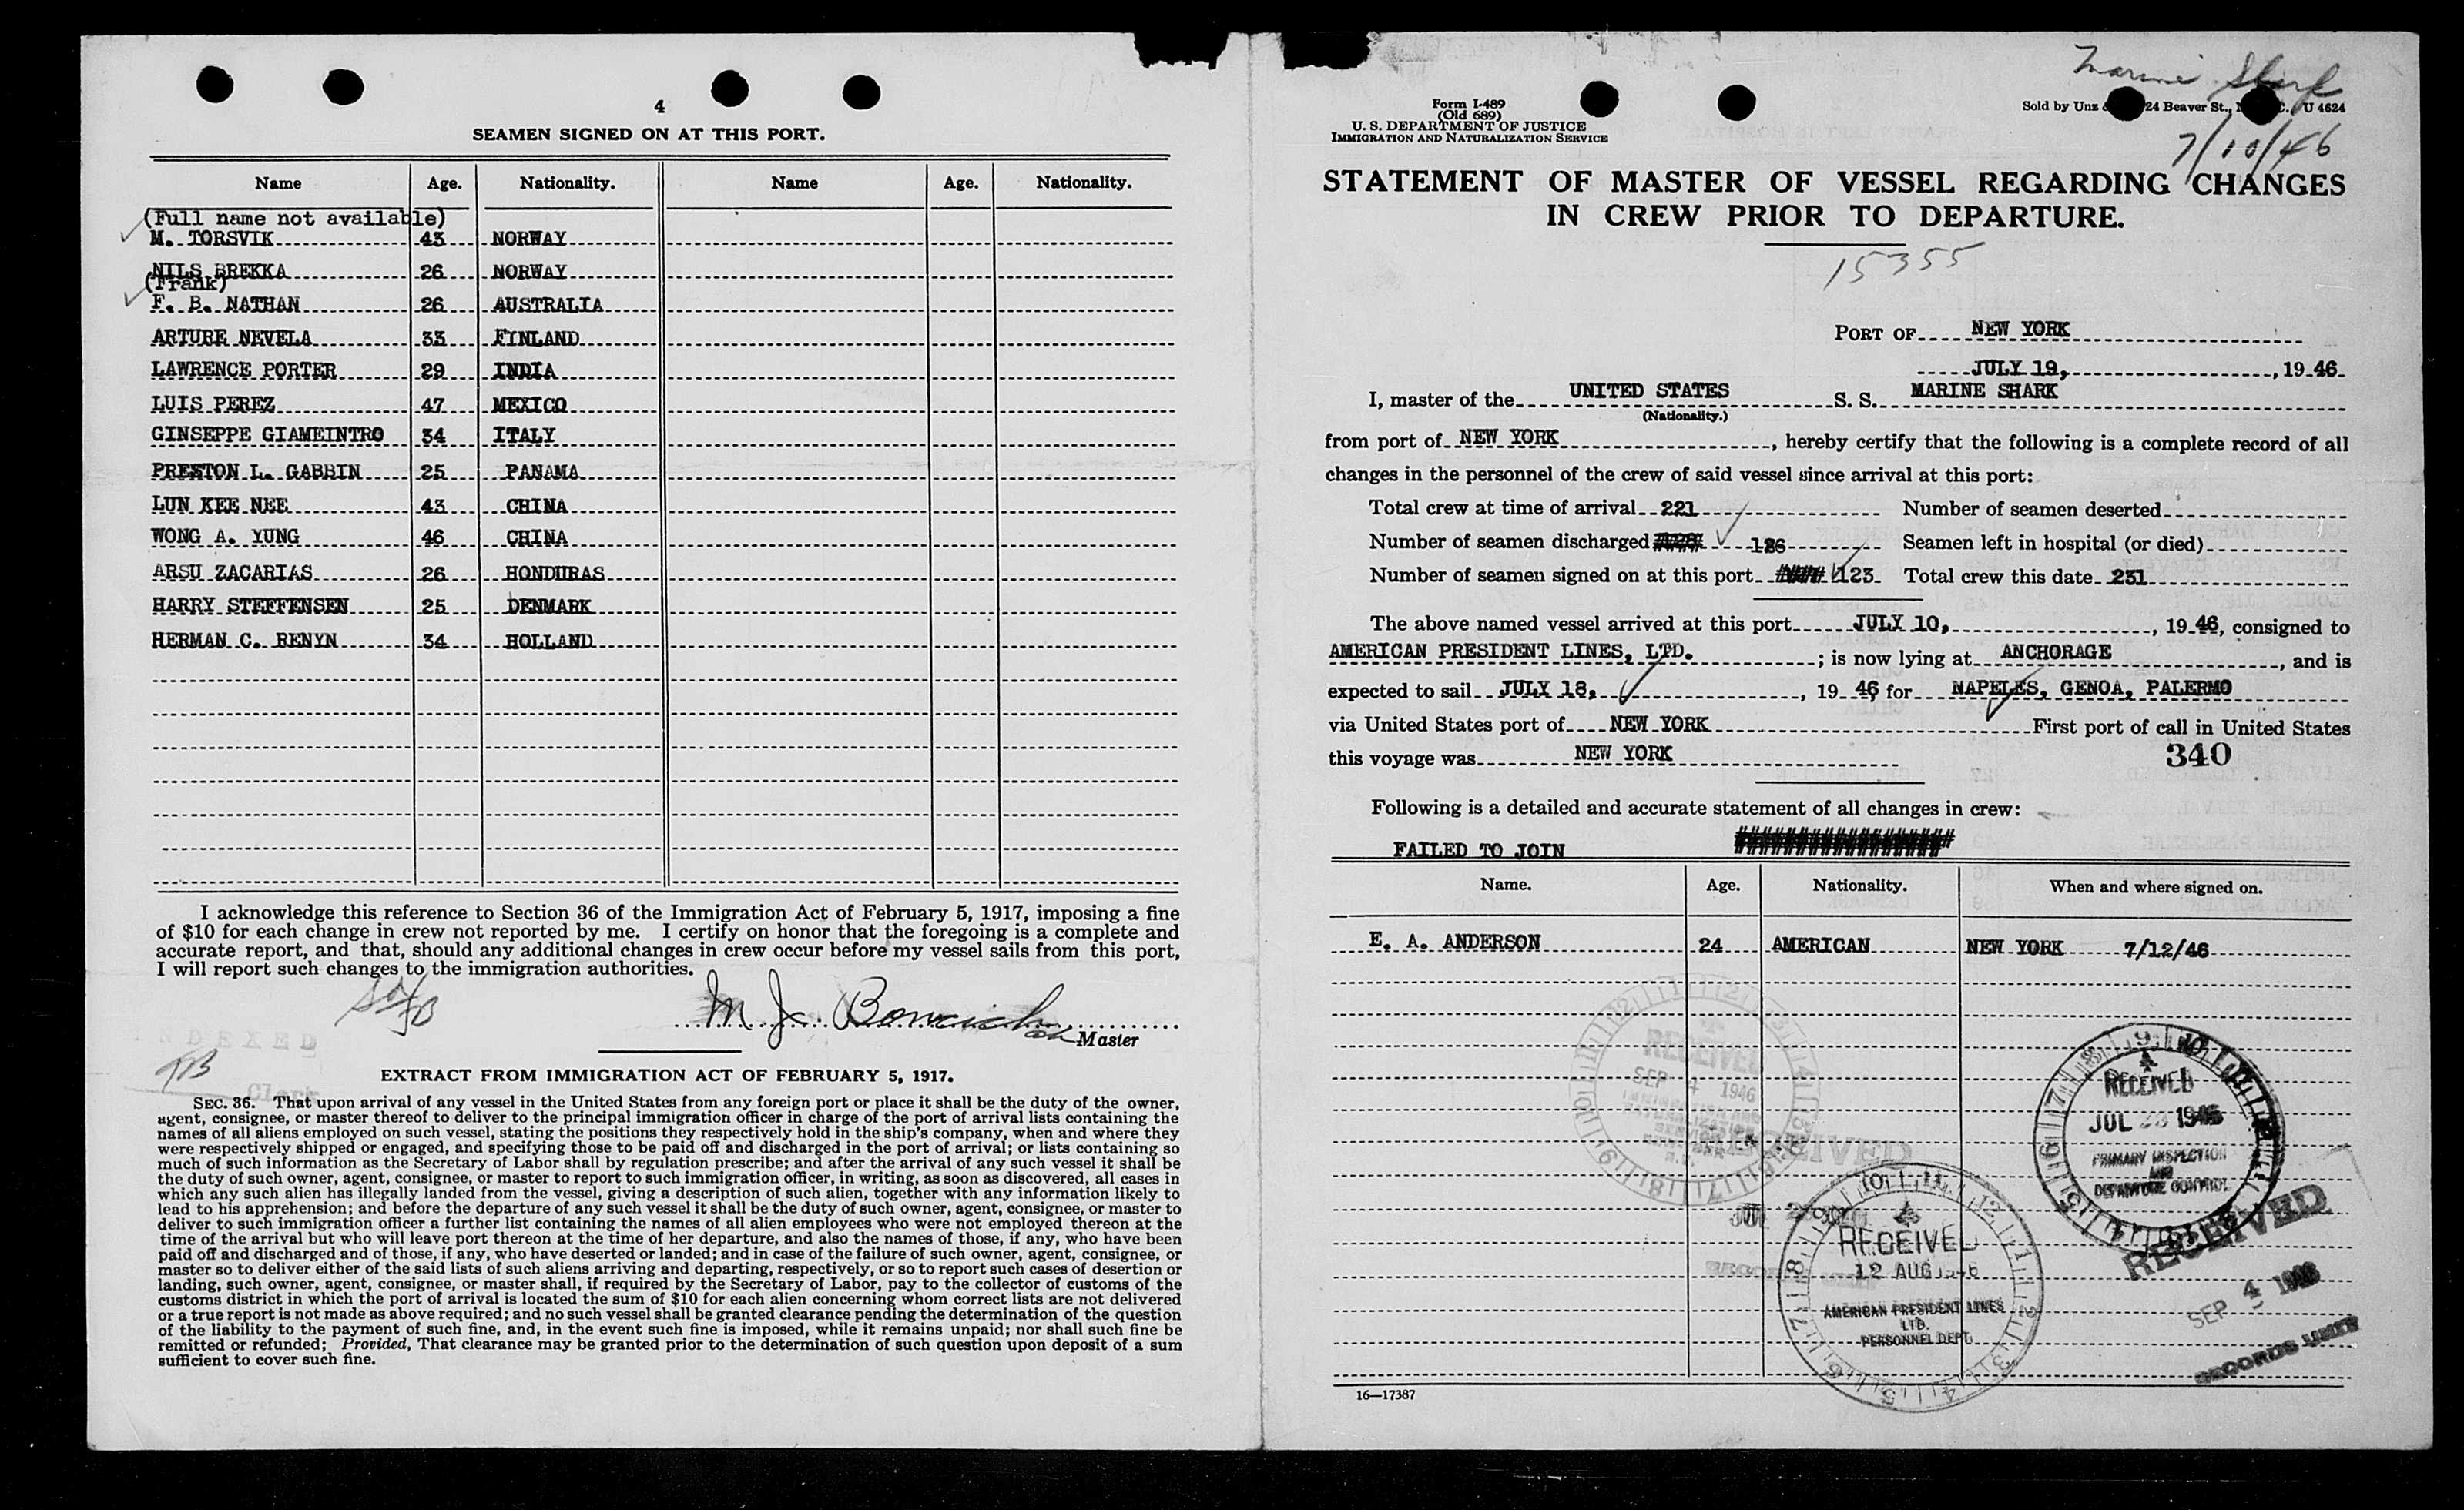 4
SEAMEN SIGNED ON AT THIS PORT.
Name Age. Nationality. Name Age. Nationality.
(Full name not available)
M. TORSVIK 43 NORWAY
NILS BREKKA 26 NORWAY
(Frank)
F. B. NATHAN 26 AUSTRALIA
ARTURE NEVELA 33 FINLAND
LAWRENCE PORTER 29 INDIA
LUIS PEREZ 47 MEXICO
GINSEPPE GIAMEINTRO 34 ITALY
PRESTON L. GABBIN 25 PANAMA
LUN KEE NEE 43 CHINA
WONG A. YUNG 46 CHINA
ARSU ZACARIAS 26 HONDURAS
HARRY STEFFENSEN 25 DENMARK
HERMAN C. RENYN 34 HOLLAND
I acknowledge this reference to Section 36 of the Immigration Act of February 5, 1917, imposing a fine
of $10 for each change in crew not reported by me. I certify on honor that the foregoing is a complete and
accurate report, and that, should any additional changes in crew occur before my vessel sails from this port,
I will report such changes to the immigration authorities.
M J.
Master
INDEXED
Clerk
EXTRACT FROM IMMIGRATION ACT OF FEBRUARY 5, 1917.
SEC. 36. That upon arrival of any vessel in the United States from any foreign port or place it shall be the duty of the owner,
agent, consignee, or master thereof to deliver to the principal immigration officer in charge of the port of arrival lists containing the
names of all aliens employed on such vessel, stating the positions they respectively hold in the ship's company, when and where they
were respectively shipped or engaged, and specifying those to be paid off and discharged in the port of arrival; or lists containing so
much of such information as the Secretary of Labor shall by regulation prescribe; and after the arrival of any such vessel it shall be
the duty of such owner, agent, consignee, or master to report to such immigration officer, in writing, as soon as discovered, all cases in
which any such alien has illegally landed from the vessel, giving a description of such alien, together with any information likely to
lead to his apprehension; and before the departure of any such vessel it shall be the duty of such owner, agent, consignee, or master to
deliver to such immigration officer a further list containing the names of all alien employees who were not employed thereon at the
time of the arrival but who will leave port thereon at the time of her departure, and also the names of those, if any, who have been
paid off and discharged and of those, if any, who have deserted or landed; and in case of the failure of such owner, agent, consignee, or
master so to deliver either of the said lists of such aliens arriving and departing, respectively, or so to report such cases of desertion or
landing, such owner, agent, consignee, or master shall, if required by the Secretary of Labor, pay to the collector of customs of the
customs district in which the port of arrival is located the sum of $10 for each alien concerning whom correct lists are not delivered
or a true report is not made as above required; and no such vessel shall be granted clearance pending the determination of the question
of the liability to the payment of such fine, and, in the event such fine is imposed, while it remains unpaid; nor shall such fine be
remitted or refunded; Provided, That clearance may be granted prior to the determination of such question upon deposit of a sum
sufficient to cover such fine.
Marine Shark
Form I-489
(Old 689)
U. S. DEPARTMENT OF JUSTICE
IMMIGRATION AND NATURALIZATION SERVICE
Sold by Unz 24 Beaver St., U 4624
7/10/46
STATEMENT OF MASTER OF VESSEL REGARDING CHANGES
IN CREW PRIOR TO DEPARTURE.
15355
PORT OF NEW YORK
JULY 19, 1946
I, master of the UNITED STATES S. S. MARINE SHARK
(Nationality.)
from port of NEW YORK, hereby certify that the following is a complete record of all
changes in the personnel of the crew of said vessel since arrival at this port:
Total crew at time of arrival 221 Number of seamen deserted
Number of seamen discharged 126 Seamen left in hospital (or died)
Number of seamen signed on at this port 123 Total crew this date 231
The above named vessel arrived at this port JULY 10, 1946, consigned to
AMERICAN PRESIDENT LINES, LTD. ; is now lying at ANCHORAGE, and is
expected to sail JULY 18, 1946 for NAPELES, GENOA, PALERMO
via United States port of NEW YORK First port of call in United States
this voyage was NEW YORK 340
Following is a detailed and accurate statement of all changes in crew:
FAILED TO JOIN
Name. Age. Nationality. When and where signed on.
E. A. ANDERSON 24 AMERICAN NEW YORK 7/12/46
RECEIVED
SEP 4 1946
RECEIVED
JUL 1946
PRIMARY INSPECTION
AND
DEPARTURE CONTROL
RECEIVED
RECEIVED
12 AUG 1946
AMERICAN PRESIDENT LINES
LTD.
PERSONNEL DEPT.
RECEIVED
SEP 4 1946
RECORDS UNIT
16—17387